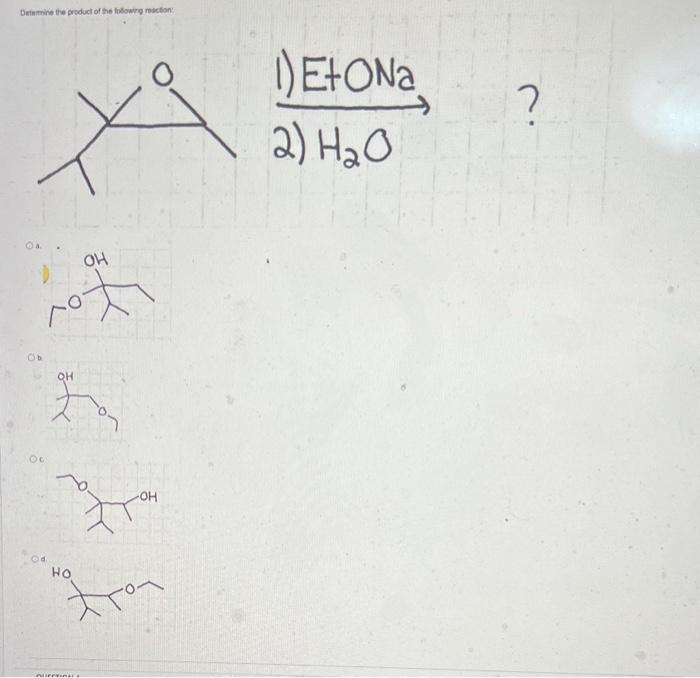 Determine the product of the following reaction:
O
1) EtONa
2) H2O
?
a.
OH
O
b.
OH
O
c.
O
OH
d.
HO
O